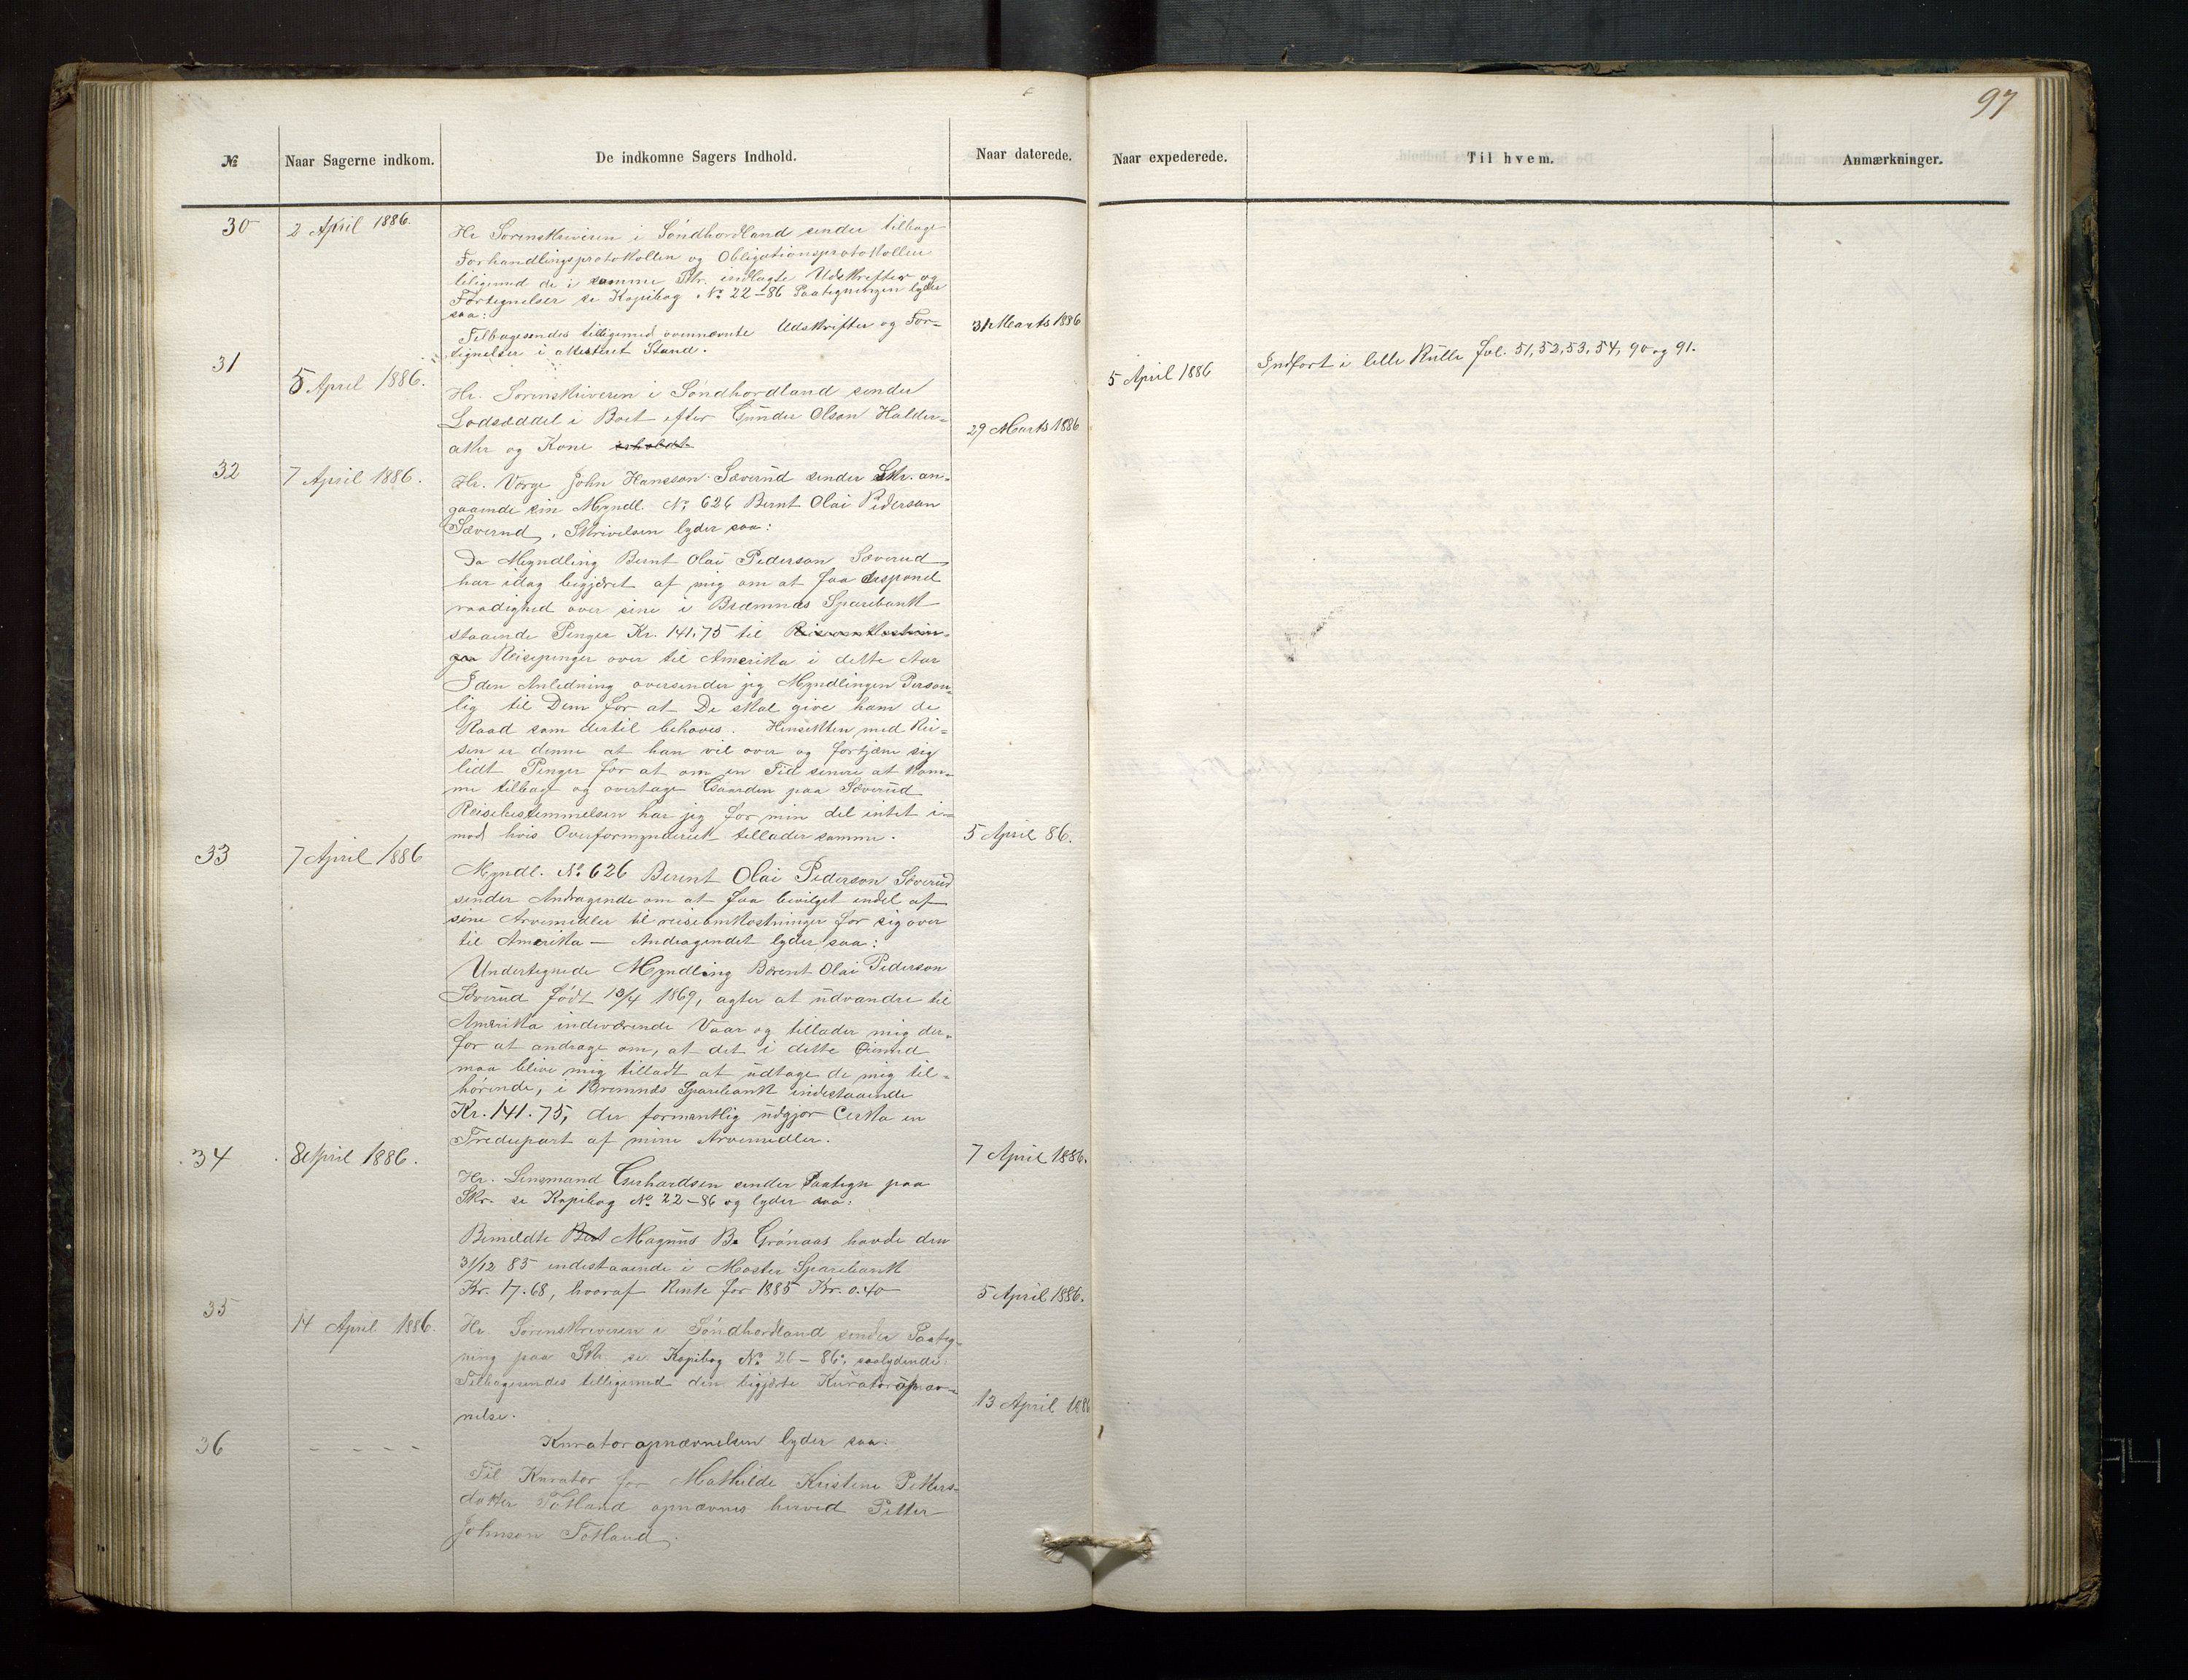 97
№
Naar Sagerne indkom.
De indkomne Sagers Indhold.
Naar daterede.
Naar expederede.
Til hvem.
Anmærkninger.
30
2 April 1886.
Hr Sorenskriveren i Söndhordland sender tilbage
Forhandlingsprotokollen og Obligationsprotokollen
tiligemed de i samme Skr. indlagte Udskrifter og
Fortegnelser se Kopibog № 22-86 Paategningen lyder
saa:
Tilbagesendes tilligemed ovennævnte Udskrifter og For-
tegnelser i attesteret Stand.
31 Marts 1886
31
5 April 1886.
Hr. Sorenskriveren i Söndhordland sender
Lodseddel i Boet efter Gunder Olson Halder-
aker og Kone
29 Marts 1886
5 April 1886
Indfort i lille Rulle fol. 51, 52, 53, 54, 90 og 91.
32
7 April 1886.
Hr. Verge John Hansson Sæverud sender Skr. an-
gaaende sin Myndl. № 626 Bernt Olai Pederson
Sæverud, Skrivelsen lyder saa:
Da Myndling Bernt Olai Pederson Sæverud
har idag begjæret af mig om at faa dispond
raadighed over sine i Bræmnæs Sparebank
staaende Penger Kr. 141.75 til Reiseomkostnin-
ger Reisepenger over til Amerika i dette Aar
I den Anledning oversender jeg Myndlingen Person-
lig til Dem for at De skal give ham de
Raad som dertil behøves. Hensikten med Rei-
sen er denne at han vil over og fortjæne sig
lidt Penger for at om en Tid senere at kom-
me tilbage og overtage Gaarden paa Sæverud
Reisebestemmelsen har jeg for min del intet i-
mod hvis Overformynderiet tillader samme.
5 April 86.
33
7 April 1886
Myndl. № 626 Berent Olai Pederson Sæverud
sender Andragende om at faa bevilget endel af
sine Arvemidler til reiseomkostninger for sig over
til Amerika — Andragendet lyder saa:
Undertegnede Myndling Berent Olai Pederson
Sæverud födt 10/4 1869, agter at udvandre til
Amerika indeværende Vaar og tillader mig der-
for at andrage om, at det i dette Öiemed
maa blive mig tilladt at udtage de mig til-
hörende, i Bremnæs Sparebank indestaaende
Kr. 141.75, der formentlig udgjör Cerka en
Trediepart af mine Arvemidler.
7 April 1886.
34
8 April 1886.
Hr. Lensmand Gerhardsen sender Paategn paa
Skr. se Kopibog № 22-86 og lyder saa:
Bemeldte Magnus B. Grönaas havde den
31/12 85 indestaaende i Moster Sparebank
Kr. 17.68, hvoraf Rente for 1885 Kr. 0.40
5 April 1886.
35
14 April 1886.
Hr. Sorenskriveren i Söndhordland sender Paateg-
ning paa Skr. se Kopibog № 26 - 86, saalydende:
Tilbagesendes tilligemed den begjærte Kuratoropnæv-
nelse.
13 April 1886
36
- - - - -
Kuratoropnævnelsen lyder saa:
Til Kurator for Mathilde Kristine Petters-
datter Totland opnævnes herved Petter
Johnson Totland.